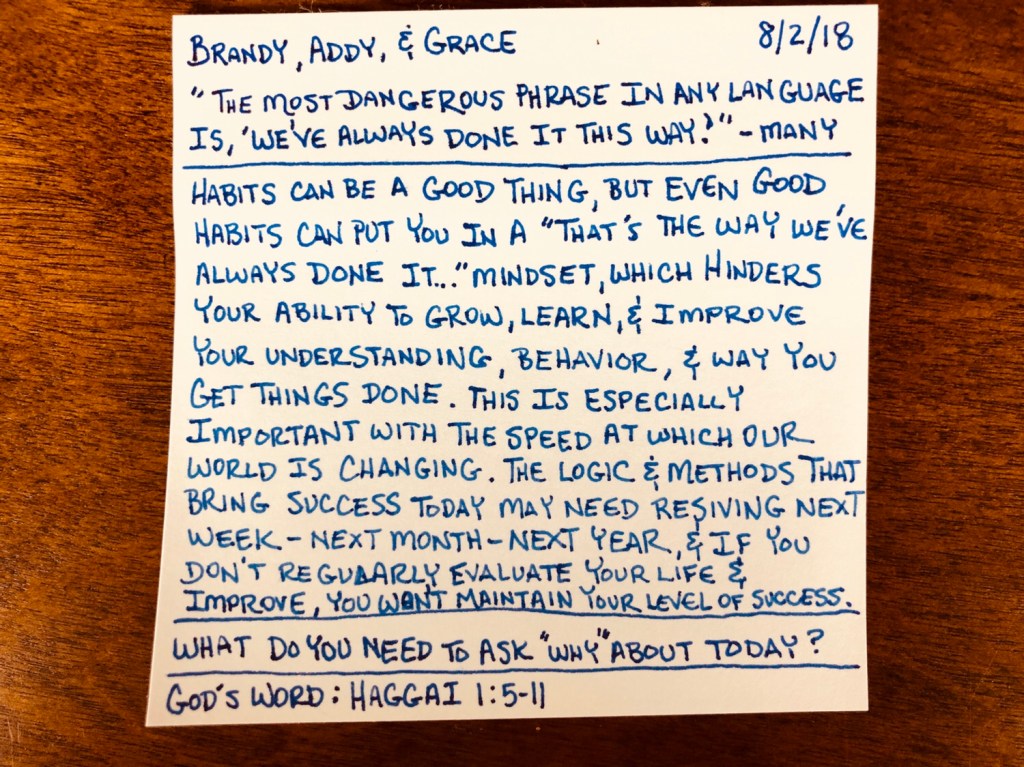 BRANDY, ADDY, & GRACE 8/2/18
"THE MOST DANGEROUS PHRASE IN ANY LANGUAGE
IS, 'WE'VE ALWAYS DONE IT THIS WAY!'" - MANY
HABITS CAN BE A GOOD THING, BUT EVEN GOOD
HABITS CAN PUT YOU IN A "THAT'S THE WAY WE'VE
ALWAYS DONE IT..." MINDSET, WHICH HINDERS
YOUR ABILITY TO GROW, LEARN, & IMPROVE
YOUR UNDERSTANDING, BEHAVIOR, & WAY YOU
GET THINGS DONE. THIS IS ESPECIALLY
IMPORTANT WITH THE SPEED AT WHICH OUR
WORLD IS CHANGING. THE LOGIC & METHODS THAT
BRING SUCCESS TODAY MAY NEED RESIVING NEXT
WEEK - NEXT MONTH - NEXT YEAR, & IF YOU
DON'T REGULARLY EVALUATE YOUR LIFE &
IMPROVE, YOU WON'T MAINTAIN YOUR LEVEL OF SUCCESS.
WHAT DO YOU NEED TO ASK "WHY" ABOUT TODAY?
GOD'S WORD: HAGGAI 1:5-11